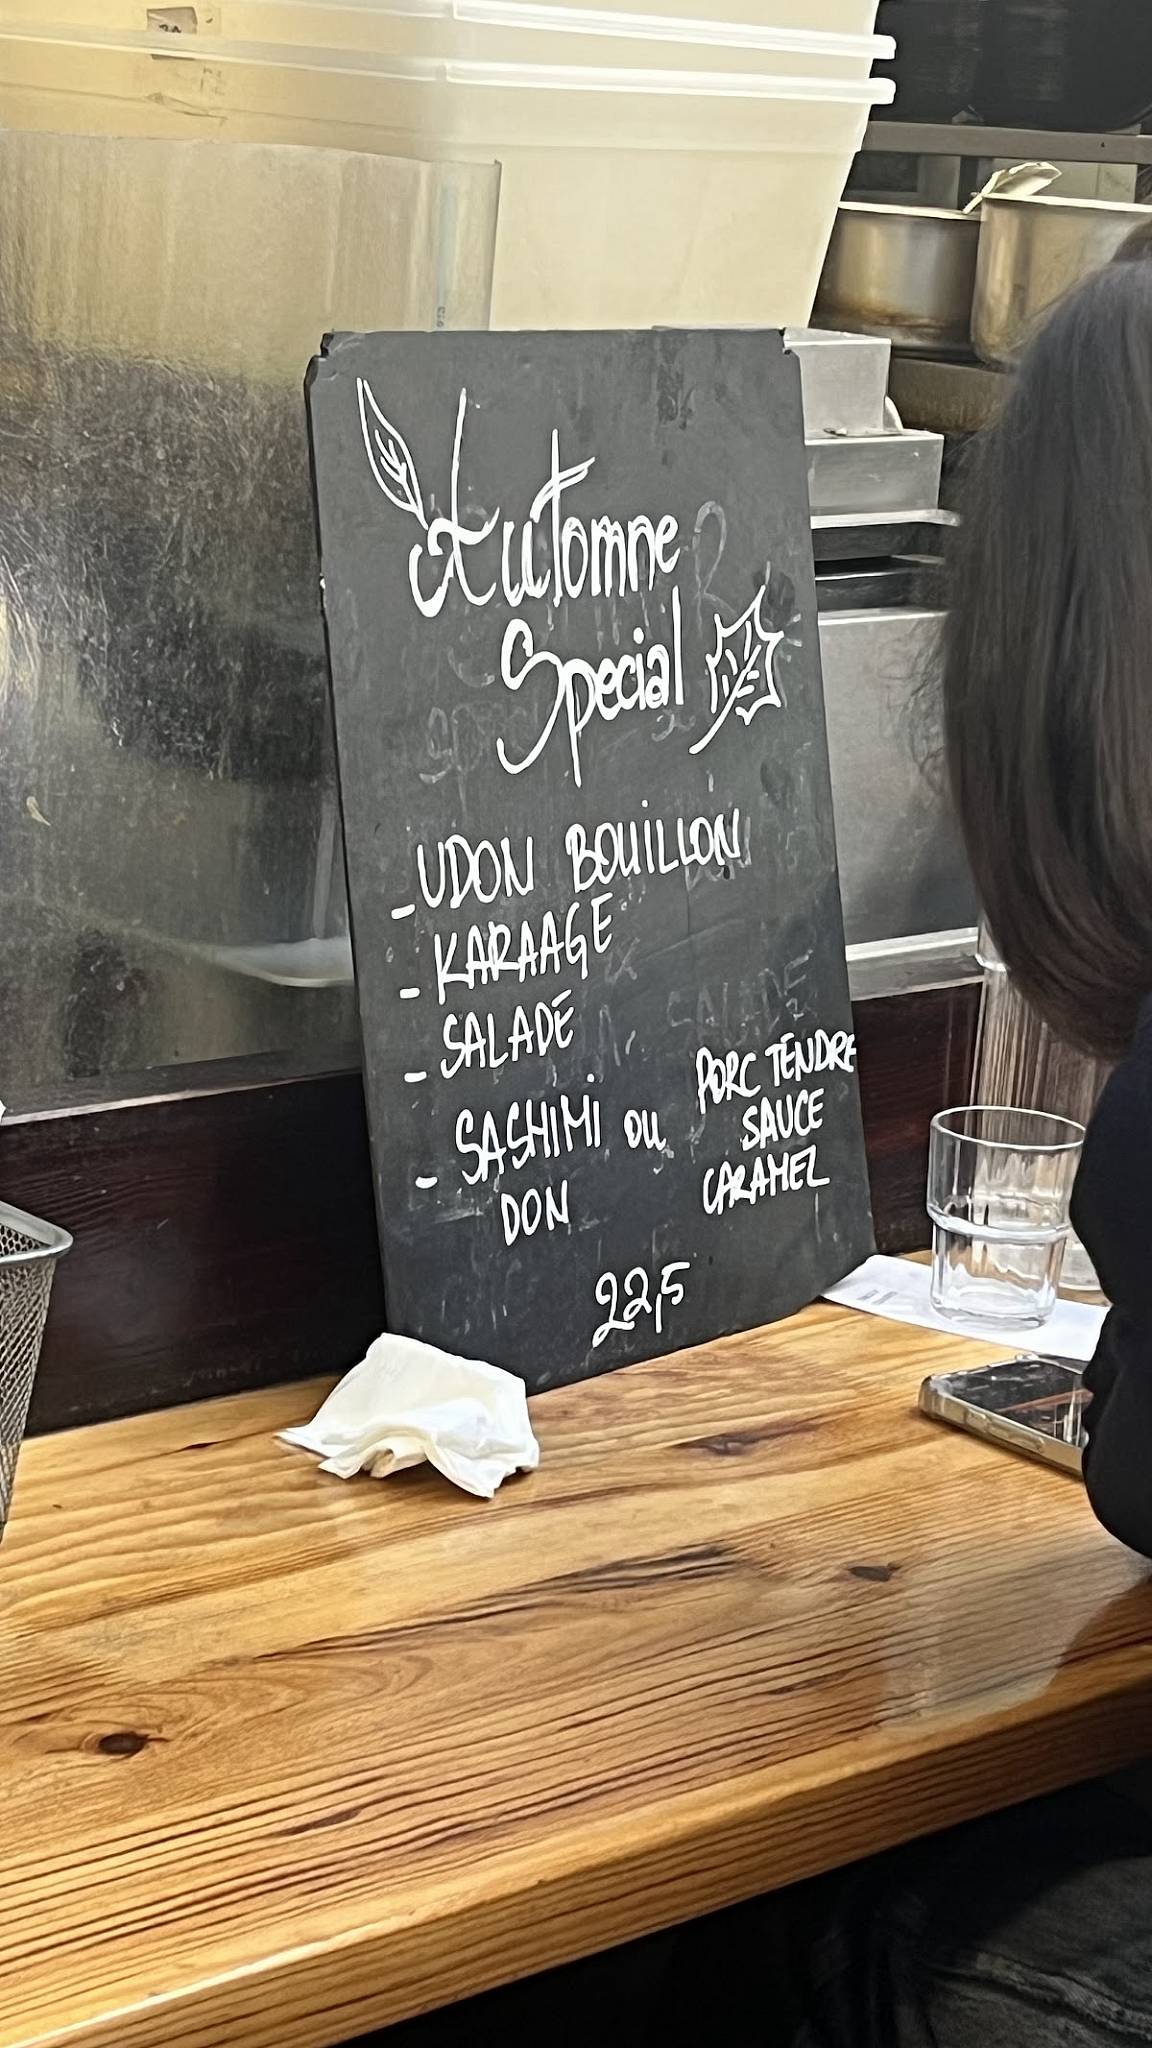 Automne
Special
- UDON BOUILLON
- KARAAGE
- SALADE
- SASHIMI ou PORC TENDRE
DON SAUCE
CARAMEL
22,5